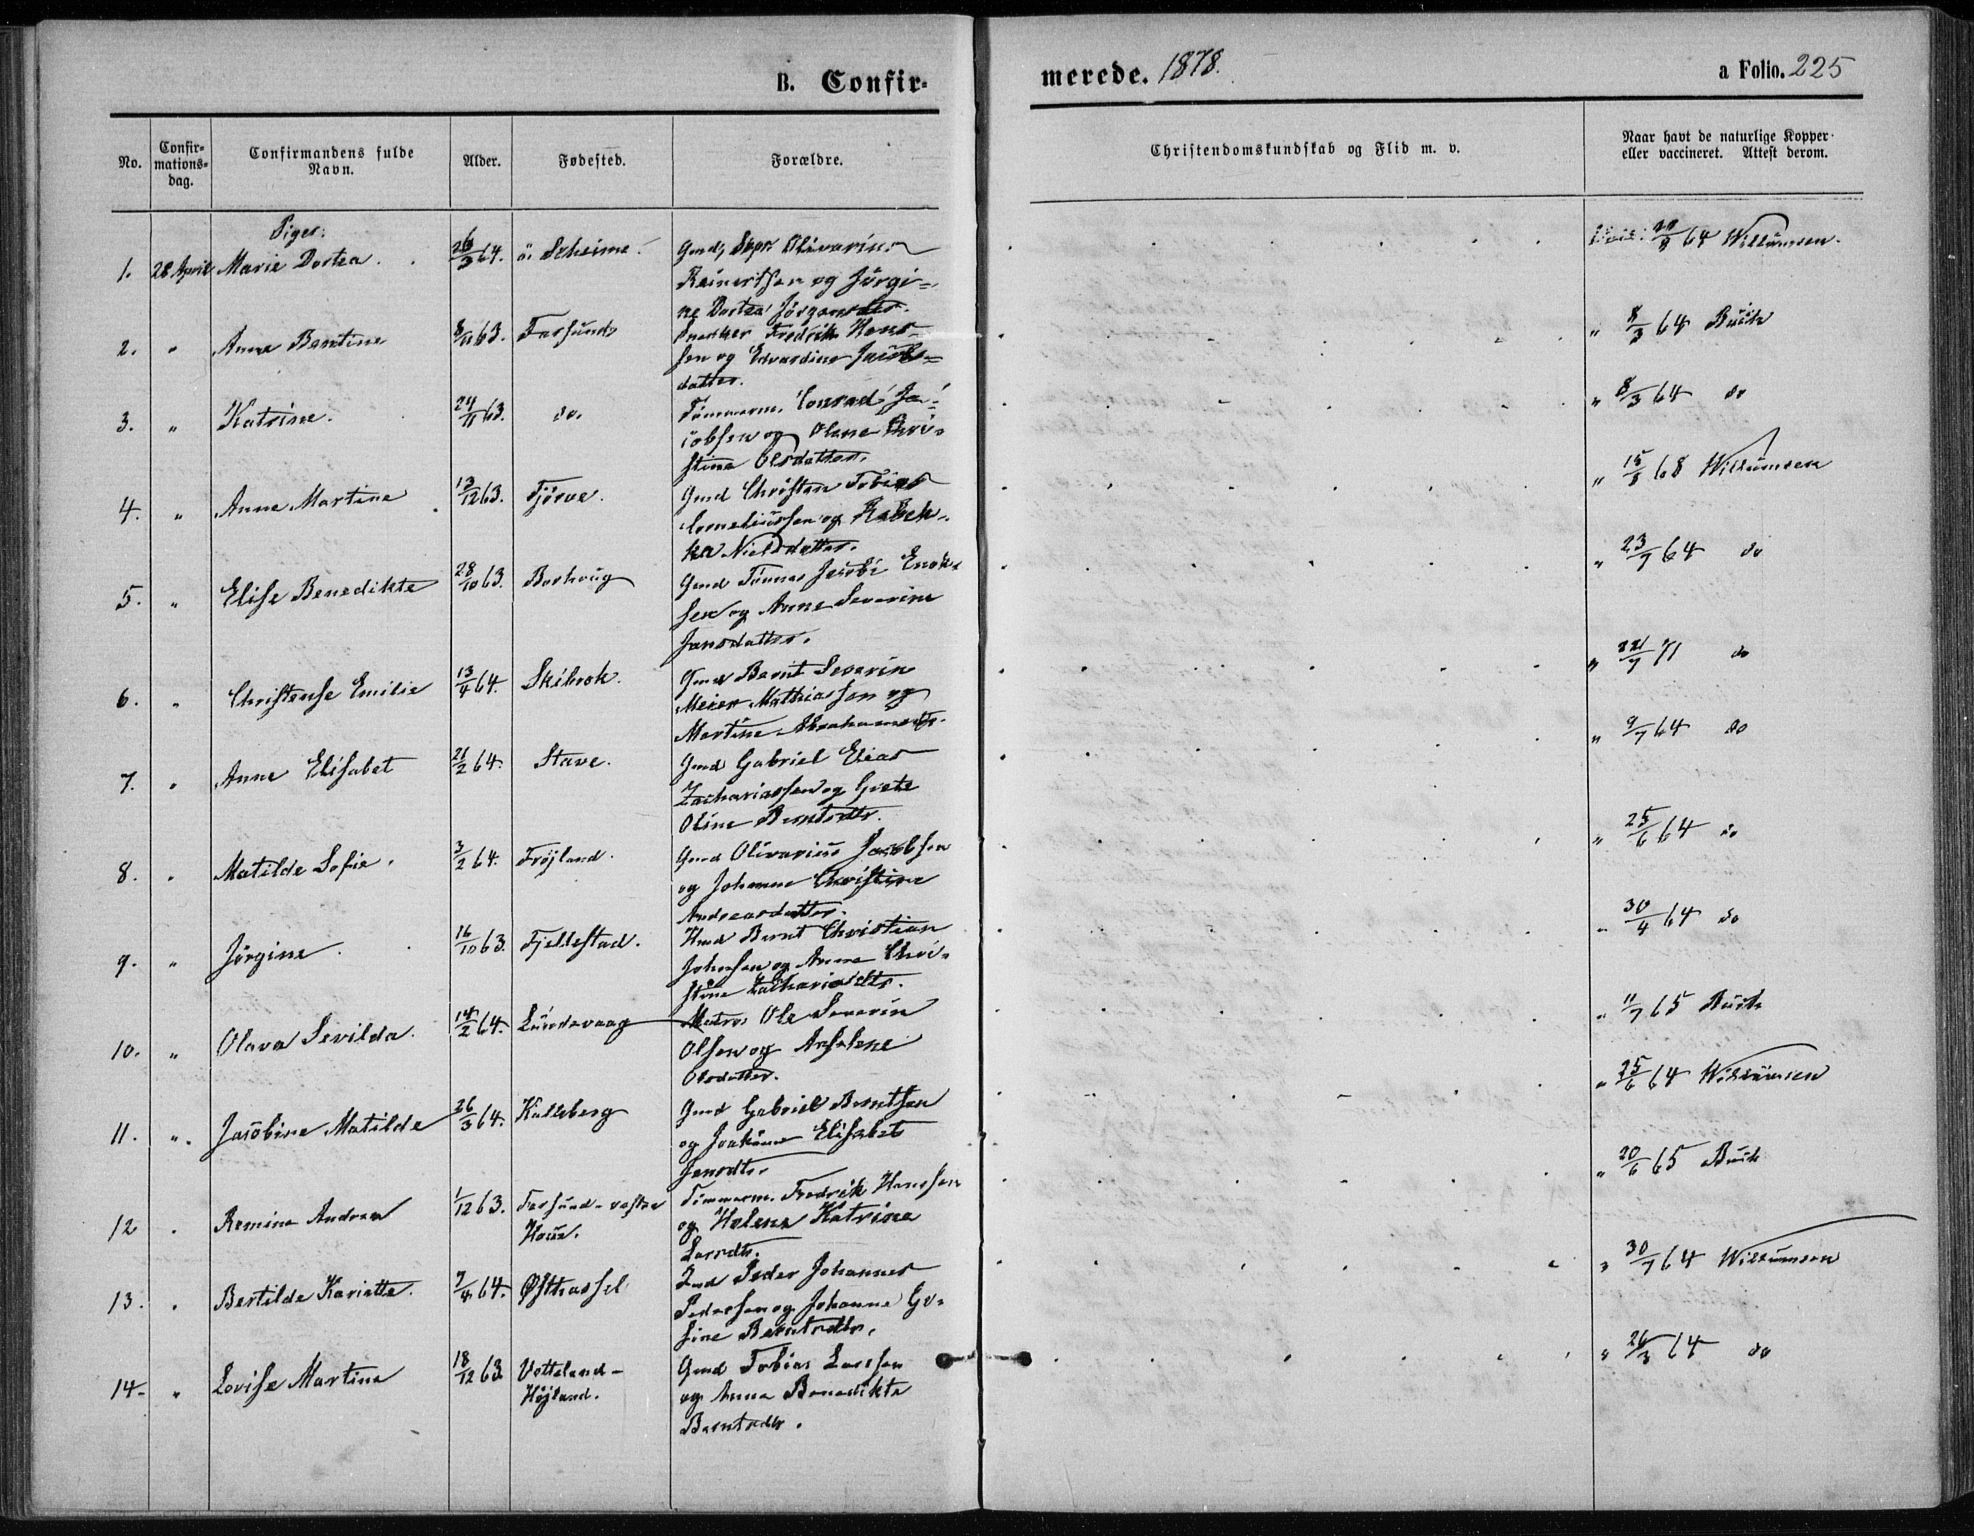 B. Confir-
merede. 1878.
a Folio. 225
No.
Confir-
mations-
dag.
Confirmandens fulde
Navn.
Alder.
Fødested.
Forældre.
Christendomskundskab og Flid m. v.
Naar havt de naturlige Kopper
eller vaccineret. Attest derom.
Piger:
1. 28 April Marie Dortea. 26/3 64. Gmd, Skpr Olivarius
Reinertsen og Jörgi-
ne Dortea Jörgensdtr.
64 Willumsen.
2. " Anne Berntine 8/11 63. Farsund Snedker Fredrik Hans-
sen og Edvardine Jacobs-
datter.
" 8/3 64 Buch
3. " Katrine. 24/11 63. do. Tömmerm. Conrad Ja-
cobsen og Olene Chri-
stine Olsdatter.
" 8/3 64 do
4. " Anne Martine 13/12 63. Tjörve. Gmd Christen Tobias
Corneliussen og Rebek-
ka Nielsdatter.
" 15/8 68 Willumsen
5. " Elise Benedikte 28/10 63. Borhaug Gmd Tönnes Jacob Enok-
sen og Anne Severine
Jansdatter.
" 23/7 64 do
6. " Christense Emilie 13/4 64. Skibrok. Gmd Bernt Severin
Meier Mathiassen og
Martine Abrahamsdtr.
" 22/7 71 do
7. " Anne Elisabet 21/2 64. Stave. Gmd Gabriel Elias
Zachariassen og Grete
Oline Berntsdtr.
" 9/7 64 do
8. " Matilde Sofie. 3/2 64. Fröjland. Gmd Olivarius Jacobsen
og Johanne Christine
Andreasdatter.
" 25/6 64 do
9. " Jörgine. 16/10 63. Fjellestad. Hmd Bernt Christian
Johnsen og Anne Chri-
stine Zachariasdtr.
" 30/4 64 do
10. " Olava Sevilda. 14/2 64. Lundevaag Matros Ole Severin
Olsen og Asselene
Olsdatter.
" 11/7 65 Buch
11. " Jacobine Matilde 26/3 64. Kalleberg Gmd Gabriel Berntsen
og Joakime Elisabet
Jensdtr.
" 25/6 64 Willumsen
12 " Remine Andrea 1/12 63. Farsund-vestre
Havn. Tömmerm. Fredrik Hanssen
og Helene Katrine
Larsdtr.
" 20/6 65 Buch
13. " Bertilde Kariatte. 7/4 64. Østhassel Peder Johannes
Pedersen og Johanne Ge-
sine Berntsdtr.
" 30/7 64 Willumsen
14- " Lovise Martine 18/12 63 Vatteland-
Höjland. Gmd Tobias Larsen
og Anna Benedikte
Berntsdtr.
" 26/3 64 do